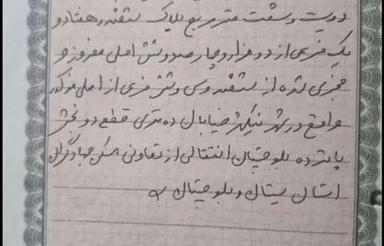 دویست و شصت متر مربع پلاک ششصد و هفتاد و
یک فرعی از دو هزار و چهارصد و شش اصلی مفروز و
مجزی شده از ششصد و سی و شش فرعی از اصلی مذکور
واقع در شهر نیکشهر خیابان ده متری قطع دو بخش
پانزده بلوچستان انتقالی از تعاونی مسکن جهادگران
استان سیستان و بلوچستان